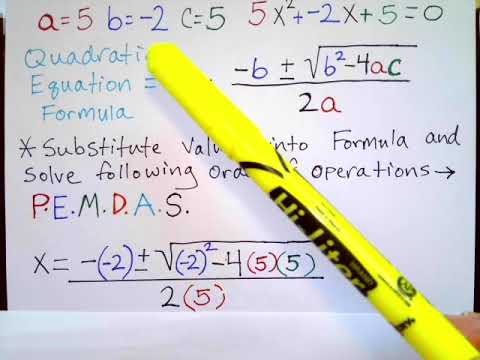 a=5 b=-2 c=5 5x²+-2x+5=0
Quadrati
Equation = -b ± √b²-4ac
Formula 2a
* Substitute Valu into Formula and
solve following Ord of operations →
P.E.M.D.A.S.
x= -(-2)±√(-2)²-4(5)(5)
2(5)
Hi-Liter